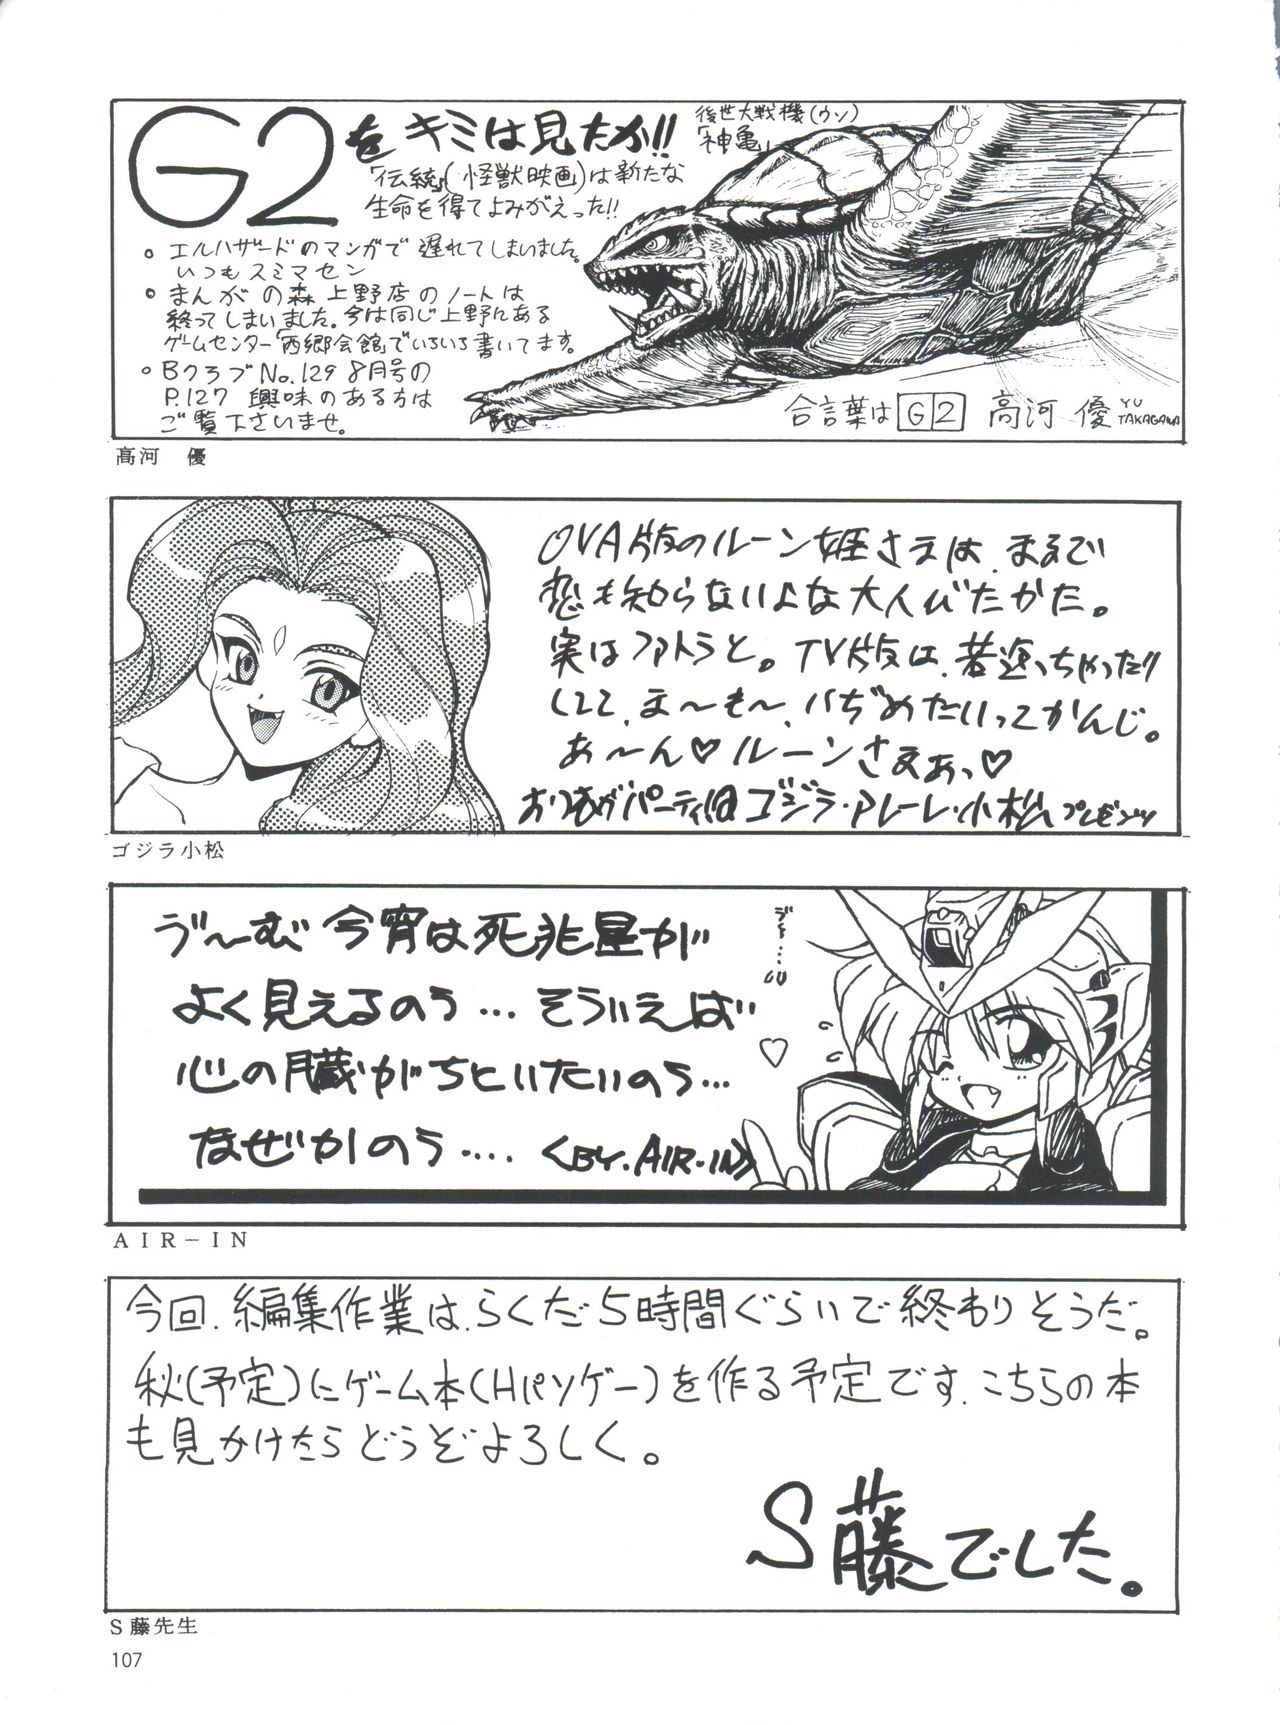 G2をキミは見たか!!
「伝統」(怪獣映画)は新たな
生命を得てよみがえった!!
後世大戦機(ウソ)
「神亀」
• エルハザードのマンガで遅れてしまいました。
いつもスミマセン
• まんがの森上野店のノートは
終ってしまいました。今は同じ上野にある
ゲームセンター「西郷会館」でいろいろ書いてます。
• BクラブNo.129 8月号の
P.127 興味のある方は
ご覧下さいませ。
合言葉はG2 高河 優 YU TAKAGAWA
高河 優
OVA版のルーン姫さまは、まるで
恋も知らないよな大人びたかた。
実はファトラと。TV版は、若返っちゃったり
してて、ま〜も〜、いぢめたいってかんじ。
あ〜ん♡ルーンさまぁっ♡
ゴジラ・Pルーレ・小松プレゼンツ
ゴジラ小松
う゛〜む今宵は死兆星が
よく見えるのう…そういえば
心の臓がちといたいのう…
なぜかのう…. <BY.AIR-IN>
AIR-IN
今回、編集作業は、らくだ5時間ぐらいで終わりそうだ。
秋(予定)にゲーム本(Hパソゲー)を作る予定です、こちらの本
も見かけたらどうぞよろしく。
S藤でした。
S藤先生
107